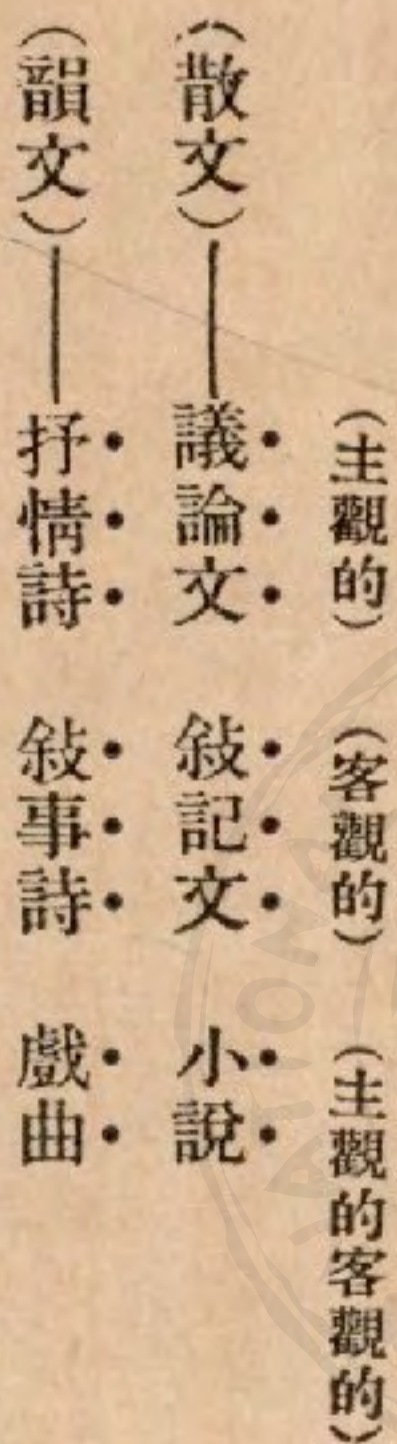 （主觀的）　（客觀的）　（主觀的客觀的）
（散文）——議論文　敍記文　小說
（韻文）——抒情詩　敍事詩　戲曲